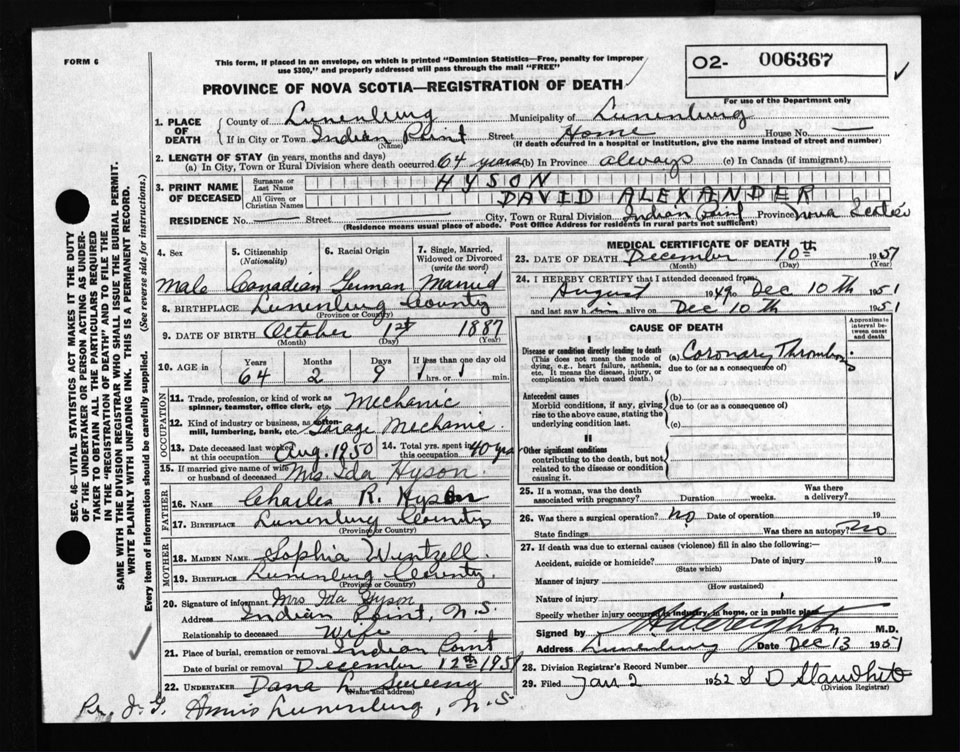 FORM 6
This form, if placed in an envelope, on which is printed "Dominion Statistics—Free, penalty for improper
use $300," and properly addressed will pass through the mail "FREE"
02- 006367
For use of the Department only
PROVINCE OF NOVA SCOTIA—REGISTRATION OF DEATH
1. PLACE OF DEATH County of Lunenburg Municipality of Lunenburg
If in City or Town Indian Point Street Home House No. —
(Name) (If death occurred in a hospital or institution, give the name instead of street and number)
2. LENGTH OF STAY (in years, months and days)
(a) In City, Town or Rural Division where death occurred 64 years (b) In Province always (c) In Canada (if immigrant)
3. PRINT NAME OF DECEASED Surname or Last Name HYSON
All Given or Christian Names DAVID ALEXANDER
RESIDENCE No. Street City, Town or Rural Division Indian Point Province Nova Scotia
(Residence means usual place of abode. Post Office Address for residents in rural parts not sufficient)
4. Sex 5. Citizenship (Nationality) 6. Racial Origin 7. Single, Married, Widowed or Divorced (write the word)
Male Canadian German Married
8. BIRTHPLACE Lunenburg County
(Province or Country)
9. DATE OF BIRTH October 1st 1887
(Month) (Day) (Year)
10. AGE in Years Months Days If less than one day old
64 2 9 hrs. or min.
OCCUPATION
11. Trade, profession, or kind of work as spinner, teamster, office clerk, etc. Mechanic
12. Kind of industry or business, as cotton-mill, lumbering, bank, etc. Garage Mechanic
13. Date deceased last worked at this occupation Aug. 1950 14. Total yrs. spent in this occupation 40 yrs
15. If married give name of wife or husband of deceased Mrs. Ida Hyson
FATHER
16. NAME Charles R. Hyson
17. BIRTHPLACE Lunenburg County
(Province or Country)
MOTHER
18. MAIDEN NAME Sophia Wentzell
19. BIRTHPLACE Lunenburg County
(Province or Country)
20. Signature of informant Mrs Ida Hyson
Address Indian Point, N.S.
Relationship to deceased Wife
21. Place of burial, cremation or removal Indian Point
Date of burial or removal December 12th 1951
22. UNDERTAKER Dana L. Sweeny
(Name and address)
Per J. G. Lunenburg, N.S.
MEDICAL CERTIFICATE OF DEATH
23. DATE OF DEATH December 10th 1951
(Month) (Day) (Year)
24. I HEREBY CERTIFY that I attended deceased from:
August 1949 to Dec 10th 1951
and last saw him alive on Dec 10th 1951
CAUSE OF DEATH
Approximate interval between onset and death
I
Disease or condition directly leading to death (a) Coronary Thrombosis
(This does not mean the mode of dying, e.g., heart failure, asthenia, etc. It means the disease, injury, or complication which caused death.)
due to (or as a consequence of)
Antecedent causes (b)
Morbid conditions, if any, giving rise to the above cause, stating the underlying condition last.
due to (or as a consequence of)
(c)
II
Other significant conditions
contributing to the death, but not related to the disease or condition causing it.
25. If a woman, was the death associated with pregnancy? Duration weeks. Was there a delivery?
26. Was there a surgical operation? No Date of operation 19
State findings Was there an autopsy? No
27. If death was due to external causes (violence) fill in also the following:—
Accident, suicide or homicide? Date of injury 19
(State which)
Manner of injury
(How sustained)
Nature of injury
Specify whether injury occurred in industry, in home, or in public place
Signed by M.D.
Address Lunenburg Date Dec 13 1951
28. Division Registrar's Record Number
29. Filed Jan 2 1952
(Division Registrar)
SEC. 46—VITAL STATISTICS ACT MAKES IT THE DUTY
OF THE UNDERTAKER OR PERSON ACTING AS UNDER-
TAKER TO OBTAIN ALL THE PARTICULARS REQUIRED
IN THE "REGISTRATION OF DEATH" AND TO FILE THE
SAME WITH THE DIVISION REGISTRAR WHO SHALL ISSUE THE BURIAL PERMIT.
WRITE PLAINLY WITH UNFADING INK. THIS IS A PERMANENT RECORD.
Every item of information should be carefully supplied. (See reverse side for instructions.)